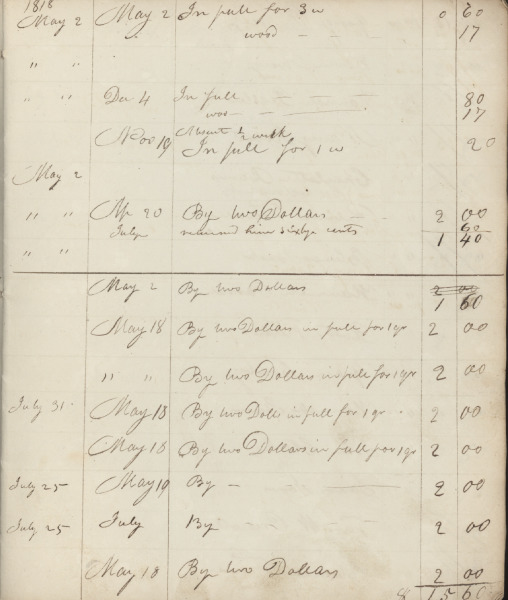 1818
May 2 May 2 In full for 3 w 0 60
wood - - 17
" "
" " De 4 In full - - - 80
woo - - 17
Nov 19 About 1/2 week
In full for 1 w 20
May 2
" " Ap 20 By two Dollars - - 2 00
July returned him sixty cents 60
" " 1 40
May 2 By two Dollars 2 00
1 60
May 18 By two Dollars in full for 1 qr 2 00
" " By two Dollars in full for 1 qr 2 00
July 31 May 18 By two Dolls in full for 1 qr . 2 00
May 18 By two Dollars in full for 1 qr 2 00
July 25 May 19 By - - - 2 00
July 25 July By - - - 2 00
May 18 By two Dollars 2 00
15 60